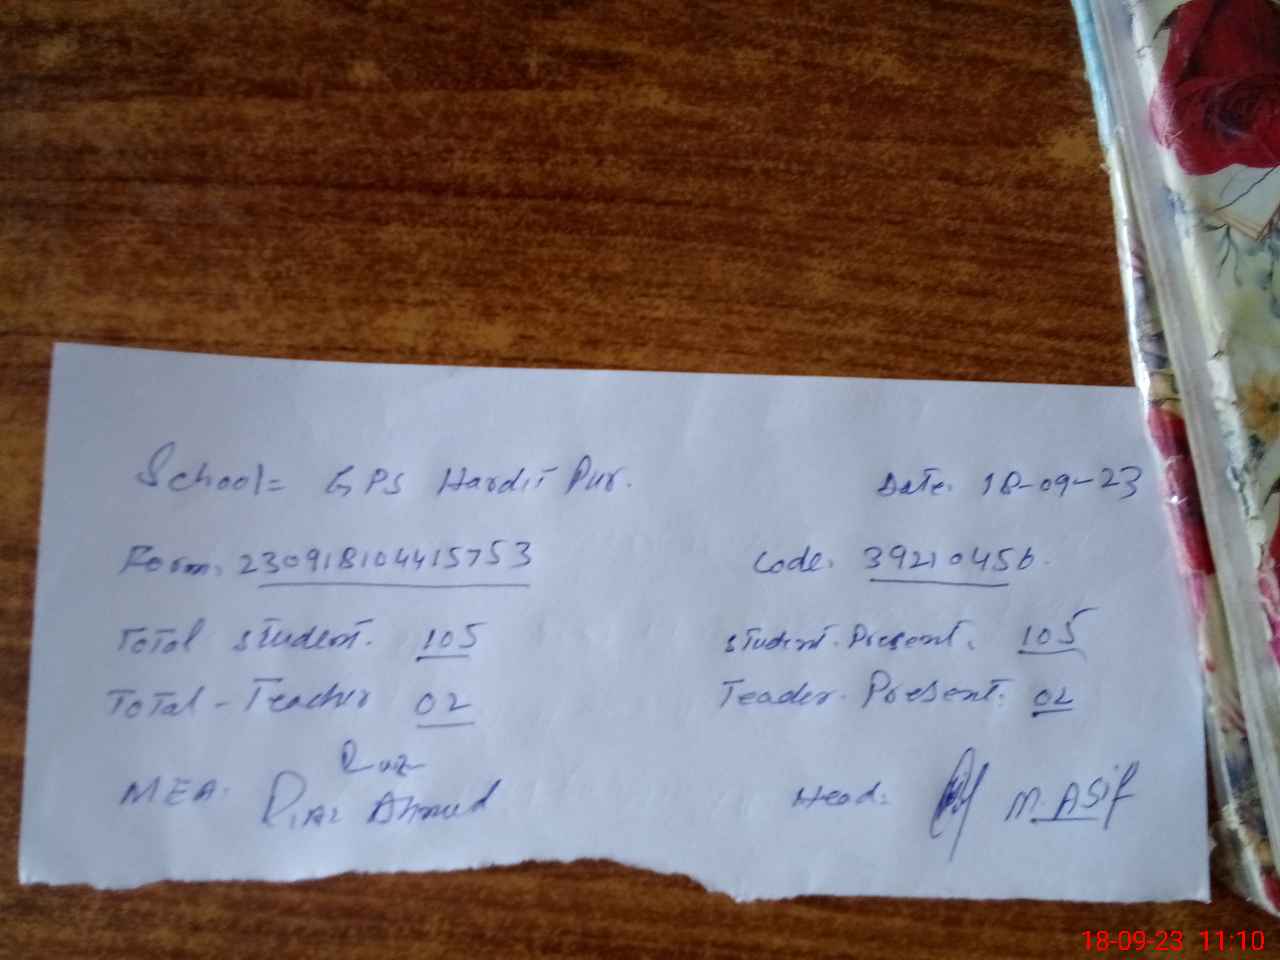 School= GPS Hardit Pur. Date. 18-09-23
Form. 230918104415753 Code. 39210456.
Total student. 105 student. Present. 105
Total - Teacher 02 Teacher. Present. 02
MEA. Riaz Ahmed Head: M. ASif
18-09-23 11:10